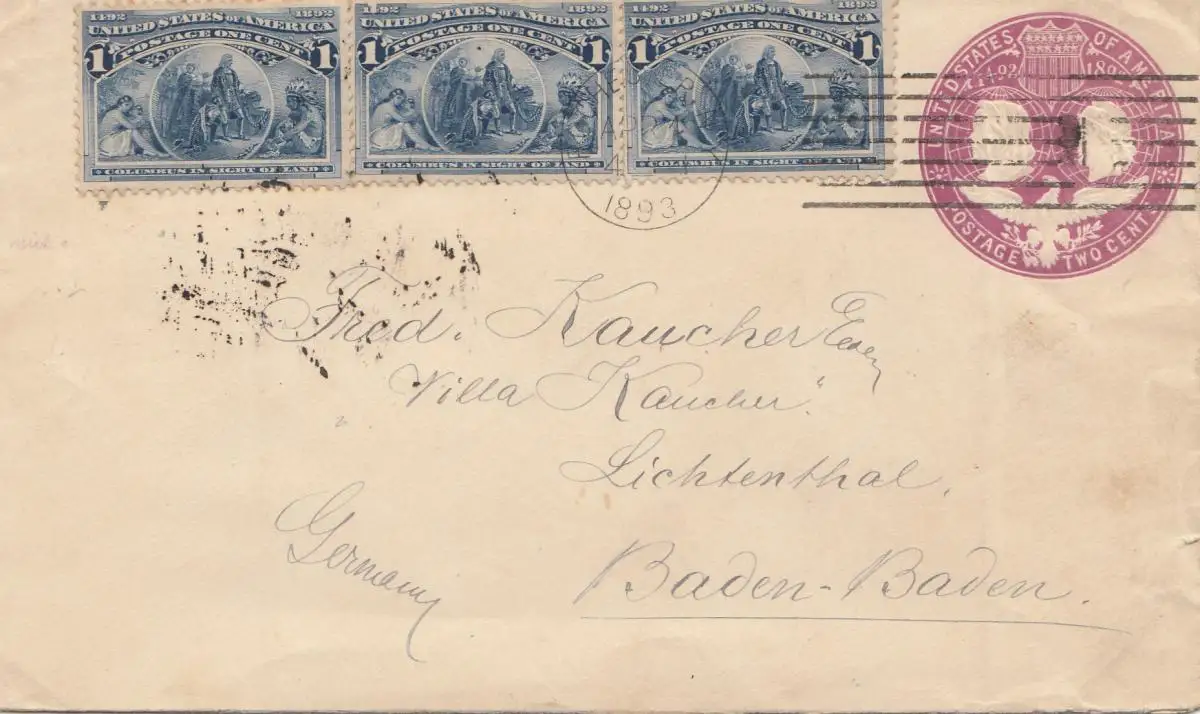 1492 1892
UNITED STATES OF AMERICA
1 POSTAGE ONE CENT 1
COLUMBUS IN SIGHT OF LAND
1492 1892
UNITED STATES OF AMERICA
1 POSTAGE ONE CENT 1
COLUMBUS IN SIGHT OF LAND
1492 1892
UNITED STATES OF AMERICA
1 POSTAGE ONE CENT 1
COLUMBUS IN SIGHT OF LAND
UNITED STATES OF AMERICA
1492 1892
POSTAGE TWO CENTS
1893
Fred. Kaucher
"Villa Kaucher"
Lichtenthal.
Baden-Baden.
Germany